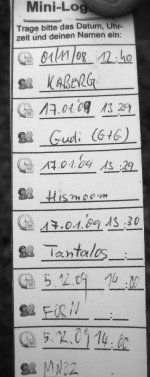 Mini-Log
Trage bitte das Datum, Uhr-
zeit und deinen Namen ein:
01/11/08 12:40
KABERG
17.01.'09 13:29
Gudi (G+G)
17.01.'09 13:29
Hismoom
17.01.'09 13:30
Tantalos
5.12.09 14:00
5.12.09 14:00